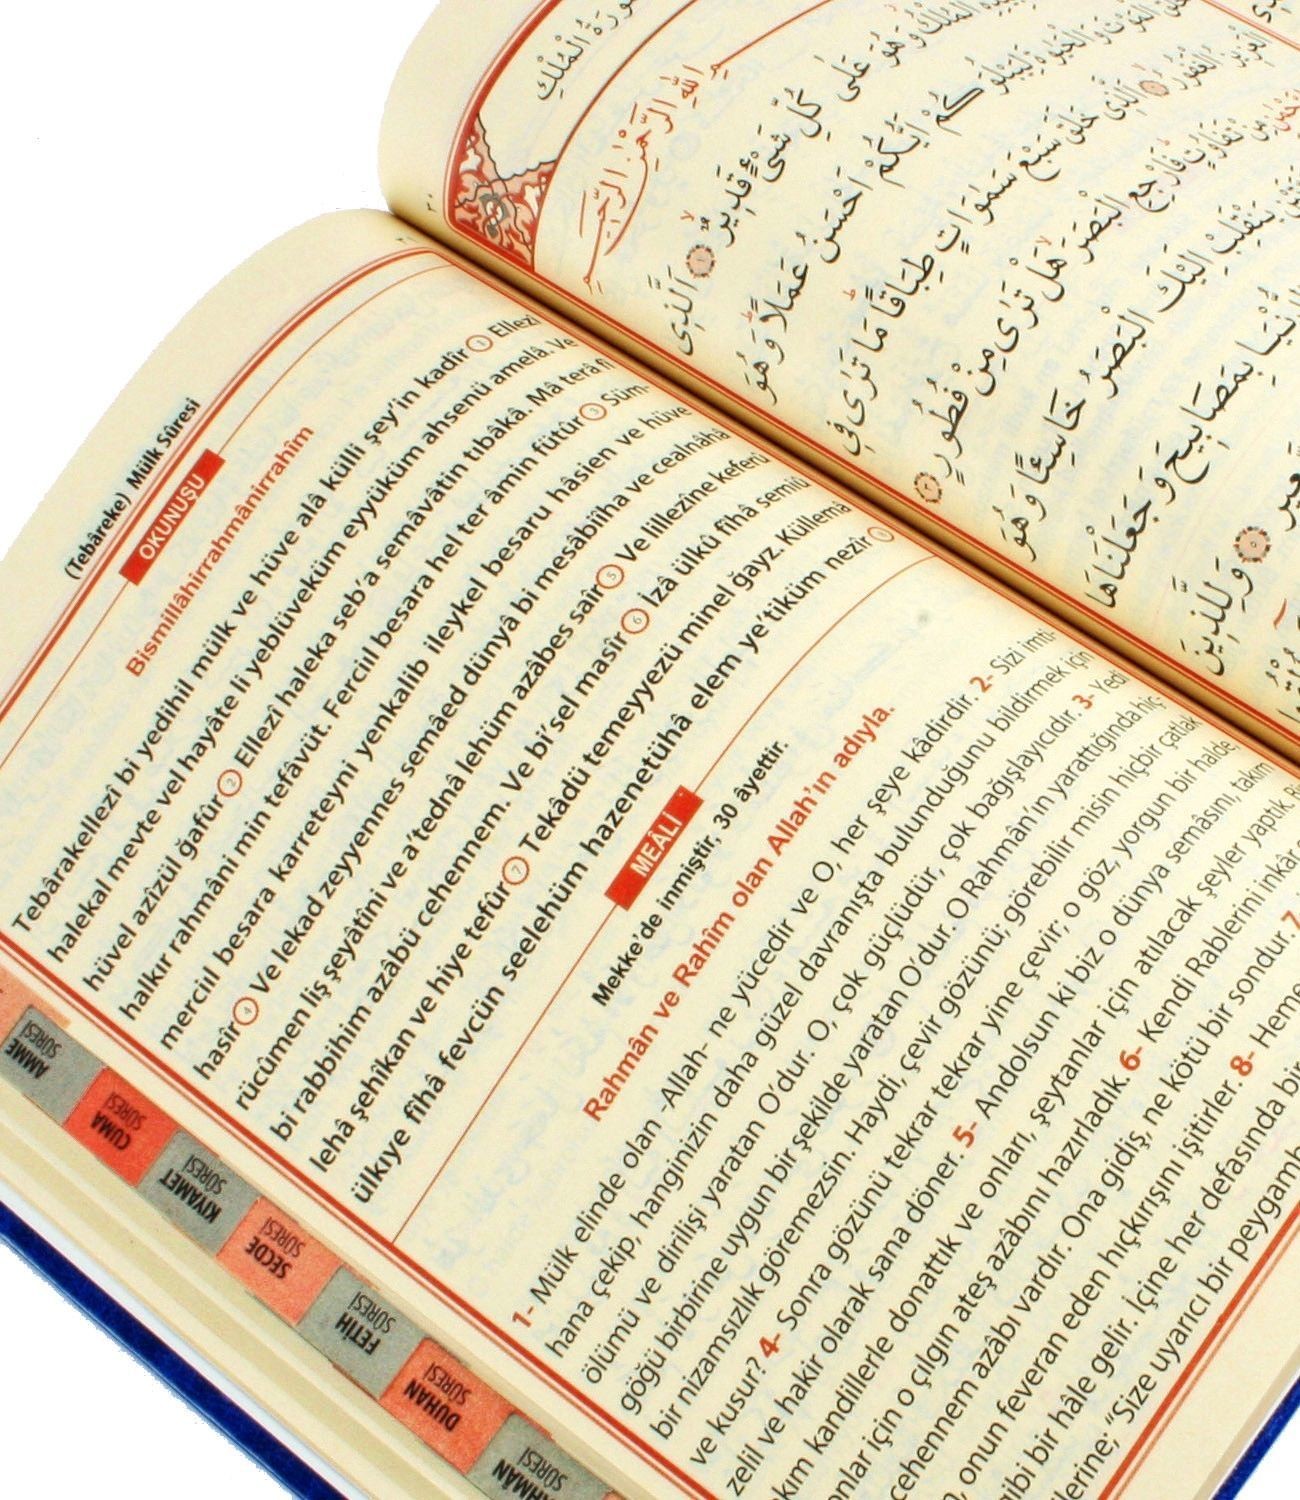 (Tebâreke) Mülk Sûresi
OKUNUŞU
Bismillâhirrahmânirrahîm
Tebârakellezî bi yedihil mülk ve hüve alâ külli şey'in kadîr ① Ellezî
halekal mevte vel hayâte li yeblüveküm eyyüküm ahsenü amelâ. Ve
hüvel azîzül ğafûr ② Ellezî haleka seb'a semâvâtin tıbâkâ. Mâ terâ fî
halkır rahmâni min tefâvüt. Ferciıl besara hel ter âmin fütûr ③ Süm-
merciıl besara karreteyni yenkalib ileykel besaru hâsien ve hüve
hasîr ④ Ve lekad zeyyennes semâed dünyâ bi mesâbîiha ve cealnâhâ
rücûmen liş şeyâtîni ve a'tednâ lehüm azâbes saîr ⑤ Ve lillezîne keferû
bi rabbihim azâbü cehennem. Ve bi'sel masîr ⑥ İzâ ülkû fîhâ semiû
lehâ şehîkan ve hiye tefûr ⑦ Tekâdü temeyyezü minel ğayz. Küllemâ
ülkıye fîhâ fevcün seelehüm hazenetühâ elem ye'tiküm nezîr ⑧
MEÂLİ
Mekke'de inmiştir, 30 âyettir.
Rahmân ve Rahîm olan Allah'ın adıyla.
1- Mülk elinde olan -Allah- ne yücedir ve O, her şeye kâdirdir. 2- Sizi imti-
hana çekip, hanginizin daha güzel davranışta bulunduğunu bildirmek için
ölümü ve dirilişi yaratan O'dur. O, çok güçlüdür, çok bağışlayıcıdır. 3- Yedi
göğü birbirine uygun bir şekilde yaratan O'dur. O Rahmân'ın yarattığında hiç-
bir nizamsızlık göremezsin. Haydi, çevir gözünü; görebilir misin hiçbir çatlak
ve kusur? 4- Sonra gözünü tekrar tekrar yine çevir; o göz, yorgun bir halde,
zelil ve hakir olarak sana döner. 5- Andolsun ki biz o dünya semâsını, takım
kandillerle donattık ve onları, şeytanlar için atılacak şeyler yaptık.
için o çılgın ateş azabını hazırladık. 6- Kendi Rablerini inkâr
cehennem azâbı vardır. Ona gidiş, ne kötü bir sondur. 7
onun feveran eden hıçkırışını işitirler. 8- Heme
gibi bir hâle gelir. İçine her defasında bir
"Size uyarıcı bir peygamb
AMME SÛRESİ
CUMA SÛRESİ
KIYAMET SÛRESİ
SECDE SÛRESİ
FETİH SÛRESİ
DUHAN SÛRESİ
SÛRESİ
سُورَةُ الْمُلْكِ
بِسْمِ اللّٰهِ الرَّحْمٰنِ الرَّحِيمِ
الْمُلْكُ وَهُوَ عَلٰى كُلِّ شَيْءٍ قَدِيرٌ ۙ ١ اَلَّذٖى
الْمَوْتَ وَالْحَيٰوةَ لِيَبْلُوَكُمْ اَيُّكُمْ اَحْسَنُ عَمَلًا ۜ وَهُوَ
الْعَزِيزُ الْغَفُورُ ۙ ٢ اَلَّذٖى خَلَقَ سَبْعَ سَمٰوَاتٍ طِبَاقًا ۜ مَا تَرٰى فٖى
مِنْ تَفَاوُتٍ ۜ فَارْجِعِ الْبَصَرَ ۙ هَلْ تَرٰى مِنْ فُطُورٍ ٣
يَنْقَلِبْ اِلَيْكَ الْبَصَرُ خَاسِئًا وَهُوَ
الدُّنْيَا بِمَصَابٖيحَ وَجَعَلْنَاهَا
٥ وَلِلَّذٖينَ